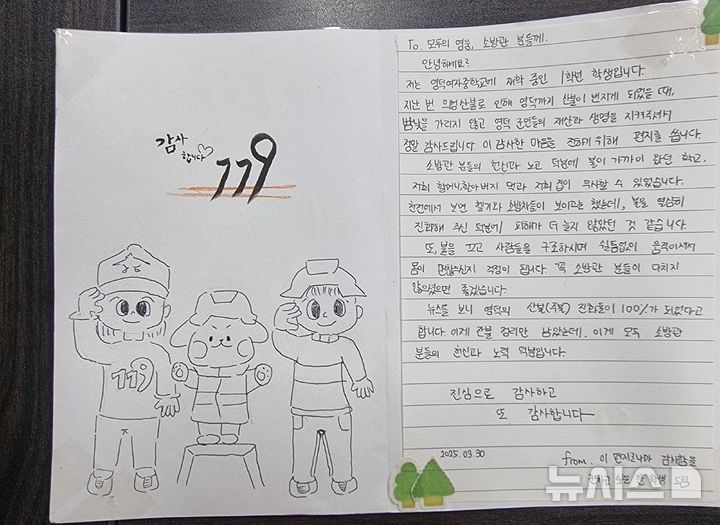 감사
합니다♡
119
119
To. 모두의 영웅, 소방관 분들께.
안녕하세요?
저는 영덕여자중학교에 재학 중인 1학년 학생입니다.
지난 번 의성산불로 인해 영덕까지 산불이 번지게 되었을 때,
밤낮을 가리지 않고 영덕 군민들의 재산과 생명을 지켜주셔서
정말 감사드립니다. 이 감사한 마음을 전하기 위해 편지를 씁니다.
소방관 분들의 헌신과 노고 덕분에 불이 가까이 왔던 학교,
저희 할머니, 할아버지 댁과 저희 집이 무사할 수 있었습니다.
현관에서 보면 헬기와 소방차들이 보이고는 했는데, 불을 열심히
진화해 주신 덕분에 피해가 더 늘지 않았던 것 같습니다.
또, 불을 끄고 사람들을 구조하시며 쉴틈없이 움직이셔서
몸이 괜찮으신지 걱정이 됩니다. 꼭 소방관 분들이 다치지
않으셨으면 좋겠습니다.
뉴스를 보니 영덕의 산불(주불) 진화율이 100%가 되었다고
합니다. 이제 잔불 정리만 남았는데, 이게 모두 소방관
분들의 헌신과 노력 덕분입니다.
진심으로 감사하고
또 감사합니다―
2025.03.30
from. 이 편지로나마 감사함을
전하고 싶은 한 학생 드림
뉴시스